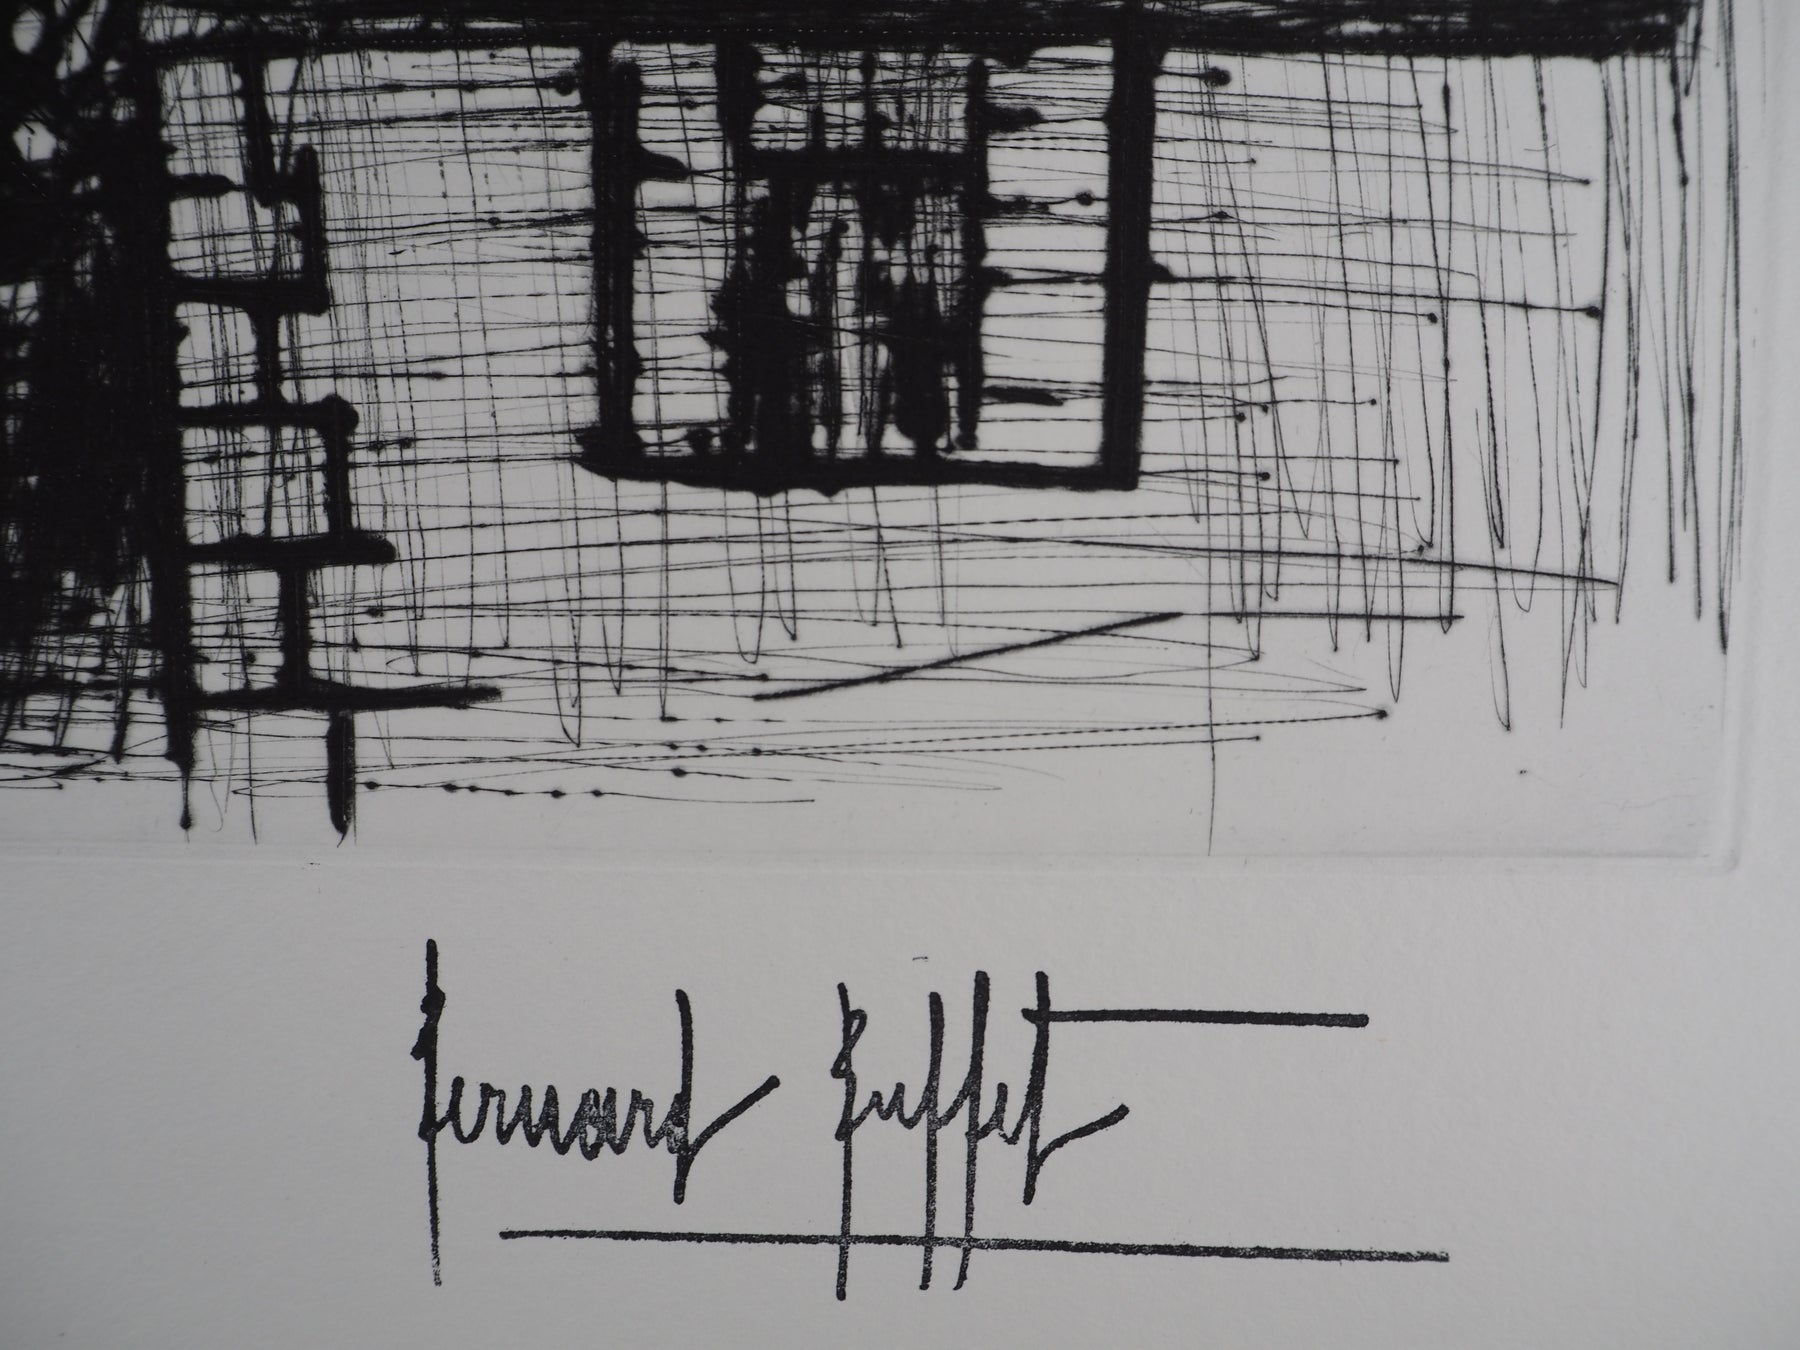 Bernard Buffet